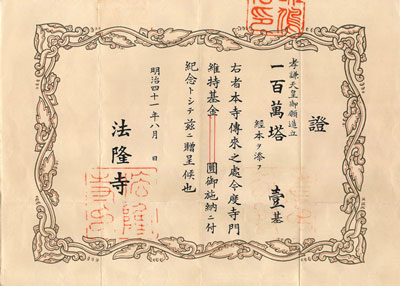 證
孝謙天皇御願造立
一百萬塔 壹基
經本ヲ添フ
右者本寺傳來之處今度寺門
維持基金 圓御施納ニ付
紀念トシテ茲ニ贈呈候也
明治四十一年八月 日
法隆寺